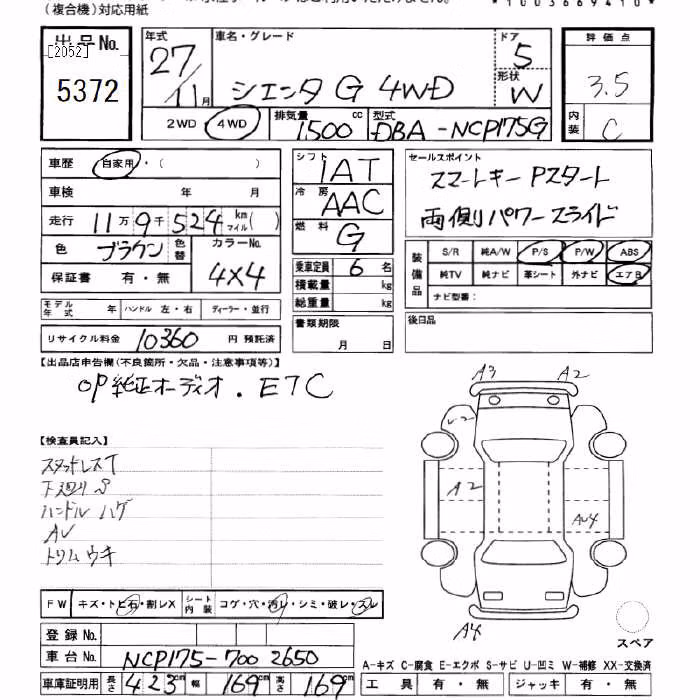 (複合機)対応用紙
*1003669410*
出品No.
[2052]
5372
年式 27/11月
車名・グレード シエンタ G 4WD
ドア 5
形状 W
2WD 4WD
排気量 1500 cc
型式 DBA-NCP175G
評価点
3.5
内装 C
車歴 自家用・( )
車検 年 月
走行 11万9千524 km マイル( )
色 ブラウン 色替 カラーNo. 4X4
保証書 有・無
モデル年式 年 ハンドル 左・右 ディーラー・並行
リサイクル料金 10360 円 預託済
シフト IAT
冷房 AAC
燃料 G
乗車定員 6 名
積載量 kg
総重量 kg
書類期限
月 日
セールスポイント
スマートキー Pスタート
両側パワースライド
装備品 S/R 純A/W P/S P/W ABS
純TV 純ナビ 革シート 外ナビ エアB
ナビ型番:
後日品
【出品店申告欄(不良箇所・欠品・注意事項等)】
OP純正オーディオ.ETC
【検査員記入】
スタットレスT
下廻りS
ハンドル ハゲ
AU
トリム ウキ
A3 A2
U2
A2
AU4
A4
スペア
FW キズ・トビ石・割レX
シート内装 コゲ・穴・汚レ・シミ・破レ・スレ
登録No.
車台No. NCP175-7002650
車庫証明用 長さ 423 幅 169 高さ 169
A-キズ C-腐食 E-エクボ S-サビ U-凹ミ W-補修 XX-交換済
工具 有・無 ジャッキ 有・無